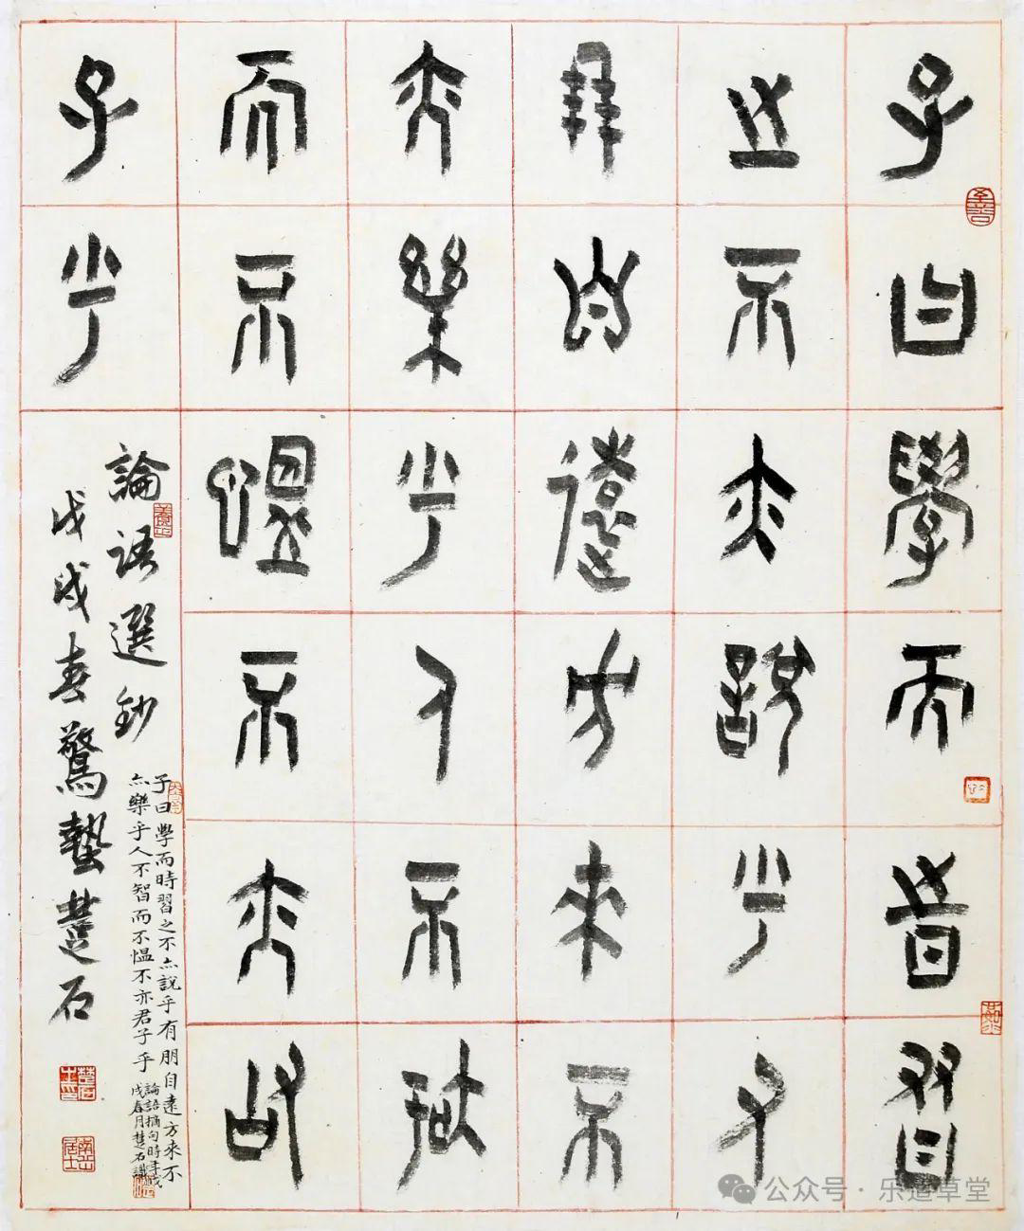 子曰學而時習
之不亦說乎有
朋自遠方來不
亦樂乎人不智
而不愠不亦君
子乎
論語選鈔
戊戌春驚蟄楚石
子曰學而時習之不亦說乎有朋自遠方來不
亦樂乎人不智而不愠不亦君子乎
論語摘句時在戊
戌春月楚石識
公众号·乐道草堂